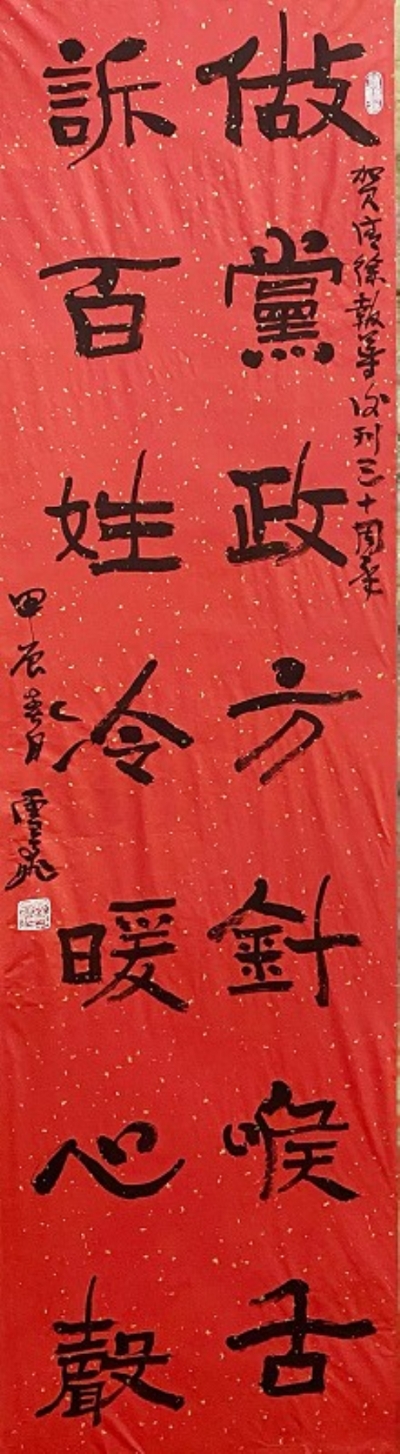 賀清徐報等改刊三十周年
做黨政方針喉舌
訴百姓冷暖心聲
甲辰春月